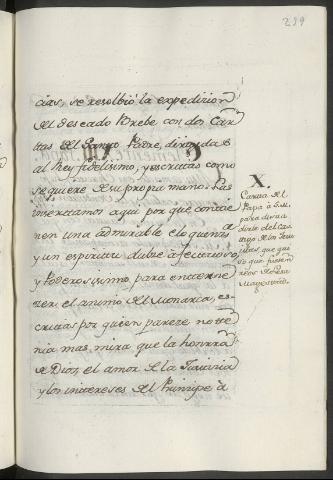 289
cias, se resolbió la expedicion
del deseado Brebe con dos Car
tas del Santo Padre, dirigidas
al Rey fidelisimo, y escritas como
se quiere de su propia mano. Las
insertamos aqui por que contie
nen una admirable eloquenzia
y un espiritu dulce afectuoso,
y Poderosisimo, para enterne
zer el animo del Monarca, es-
critas por quien pareze no te
nia mas mira que la honrra
de Dios, el amor de la Justicia
y los intereses del Principe à
X.
Carta del
Papa à S.M.
para
del Cas
tigo de los Jesu
itas, que